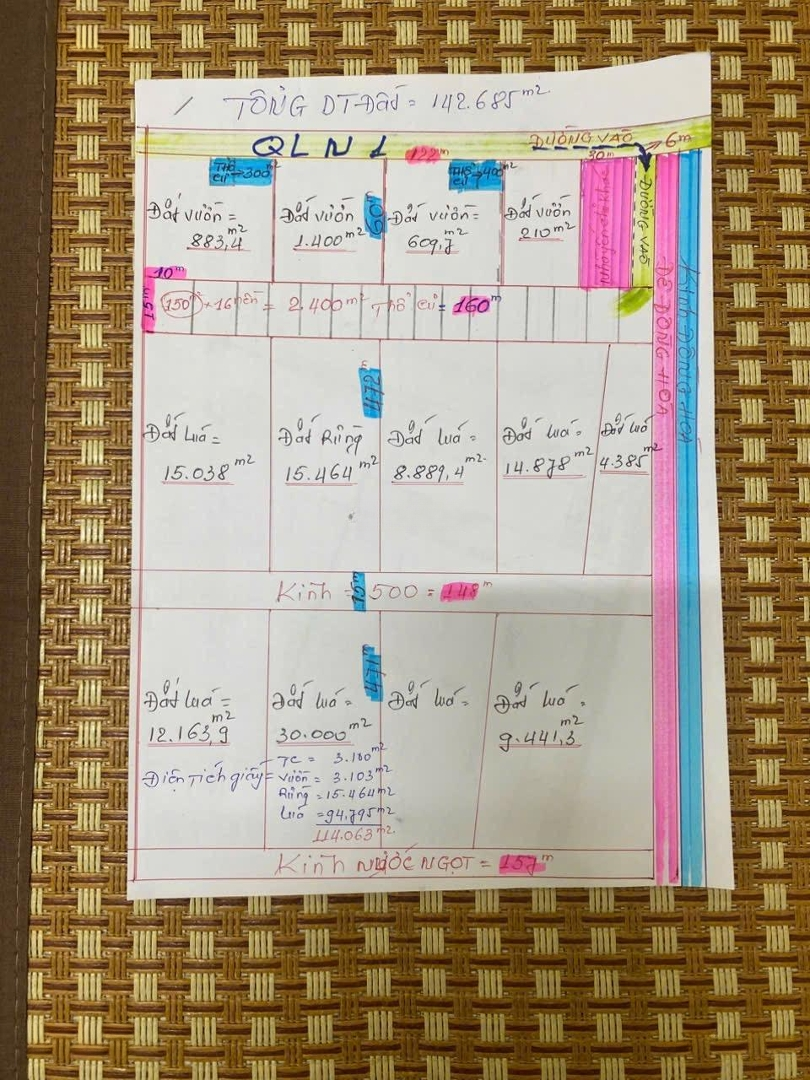 TỔNG DT Đất = 142.685 m²
QLN1
122 m
ĐƯỜNG VÀO
6m
30m
THỔ CƯ = 300 m²
THỔ CƯ = 400 m²
Đất vườn = 883,4 m²
Đất vườn 1.400 m²
60m
Đất vườn = 609,7 m²
Đất vườn 210 m²
ĐƯỜNG VÀO
ĐÊ ĐÔNG HÒA
Kinh ĐÔNG HÒA
10 m
15 m
150 m² * 16 nền = 2.400 m² Thổ cư = 160 m
472 m
Đất Luá = 15.038 m²
Đất Rừng 15.464 m²
Đất luá = 8.889,4 m²
Đất luá = 14.878 m²
Đất luá 4.385 m²
Kinh = 15m 500 = 148 m
471 m
Đất luá = 12.163,9 m²
Đất luá = 30.000 m²
Đất luá =
Đất luá = 9.441,3 m²
Diện Tích giấy =
TC = 3.100 m²
Vườn = 3.103 m²
Rừng = 15.464 m²
Luá = 94.795 m²
114.063 m²
Kinh NƯỚC NGỌT = 157 m